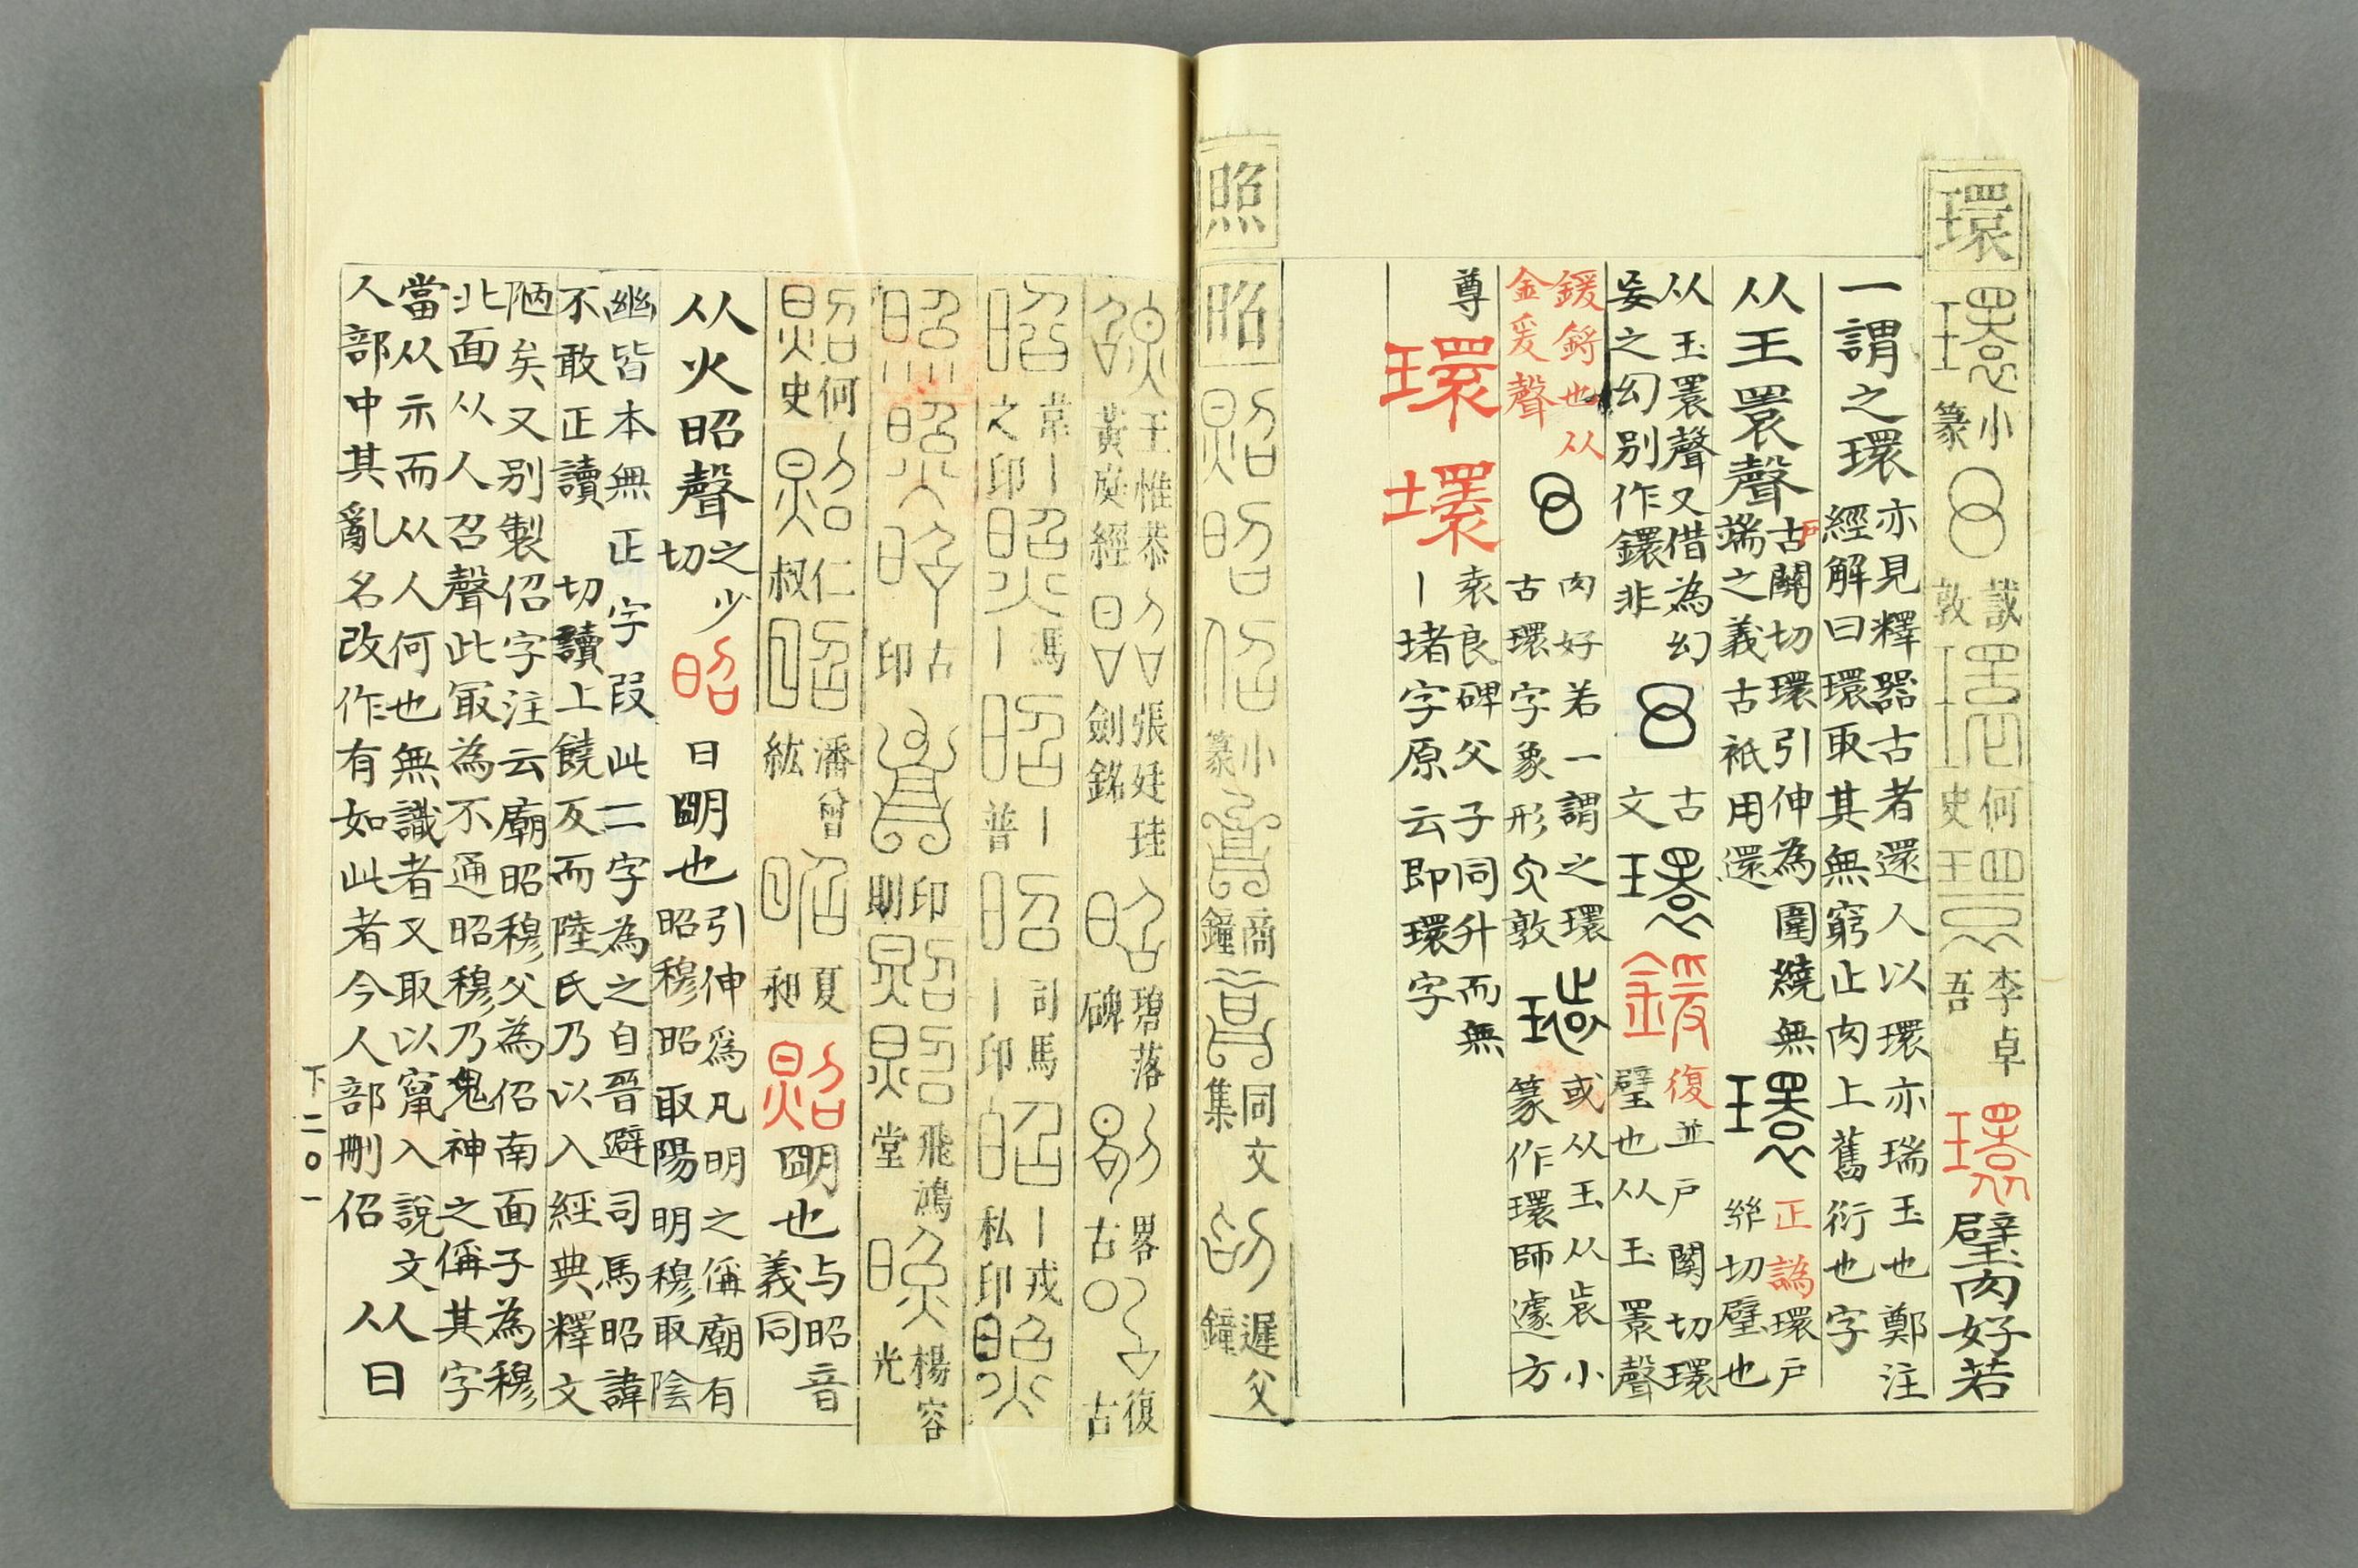 環 小篆 戠敦 何史 李卓吾 環 璧肉好若
一謂之環
亦見釋器古者還人以環亦瑞玉也鄭注
經解曰環取其無窮止肉上舊衍也字
从王睘聲
古關切環引伸為圍繞無
端之義古祇用還
環
正譌環戶
䜌切璧也
从玉睘聲又借為幻
妄之幻别作鐶非
古文 環 鍰
復並戶關切環
璧也从玉睘聲
鍰鋝也从
金爰聲
肉好若一謂之環
古環字象形 敦
或从玉从 小
篆作環師遽方
尊 環
袁良碑父子同升而無
丨堵字原云即環字
照
昭 小篆 商鐘 同文集 遲父鐘
王惟恭黃庭經 張廷珪劍銘 碧落碑 畧古 復古
常丨之印 馬丨 丨普 司馬丨印 丨戎私印
古印 印則 飛鴻堂 楊容光
何史 仁叔 潘曾紘 夏昶 照 朙也
与昭音
義同
从火昭聲
之少
切
昭 日朙也
引伸爲凡明之偁廟有
昭穆昭取陽明穆取陰
幽皆本無正字叚此二字為之自晉避司馬昭諱
不敢正讀 切讀上饒反而陸氏乃以入經典釋文
陋矣又别製佋字注云廟昭穆父為佋南面子為穆
北面从人召聲此冣為不通昭穆乃鬼神之偁其字
當从示而从人何也無識者又取以竄入說文
人部中其亂名改作有如此者今人部刪佋
从日
下二〇一